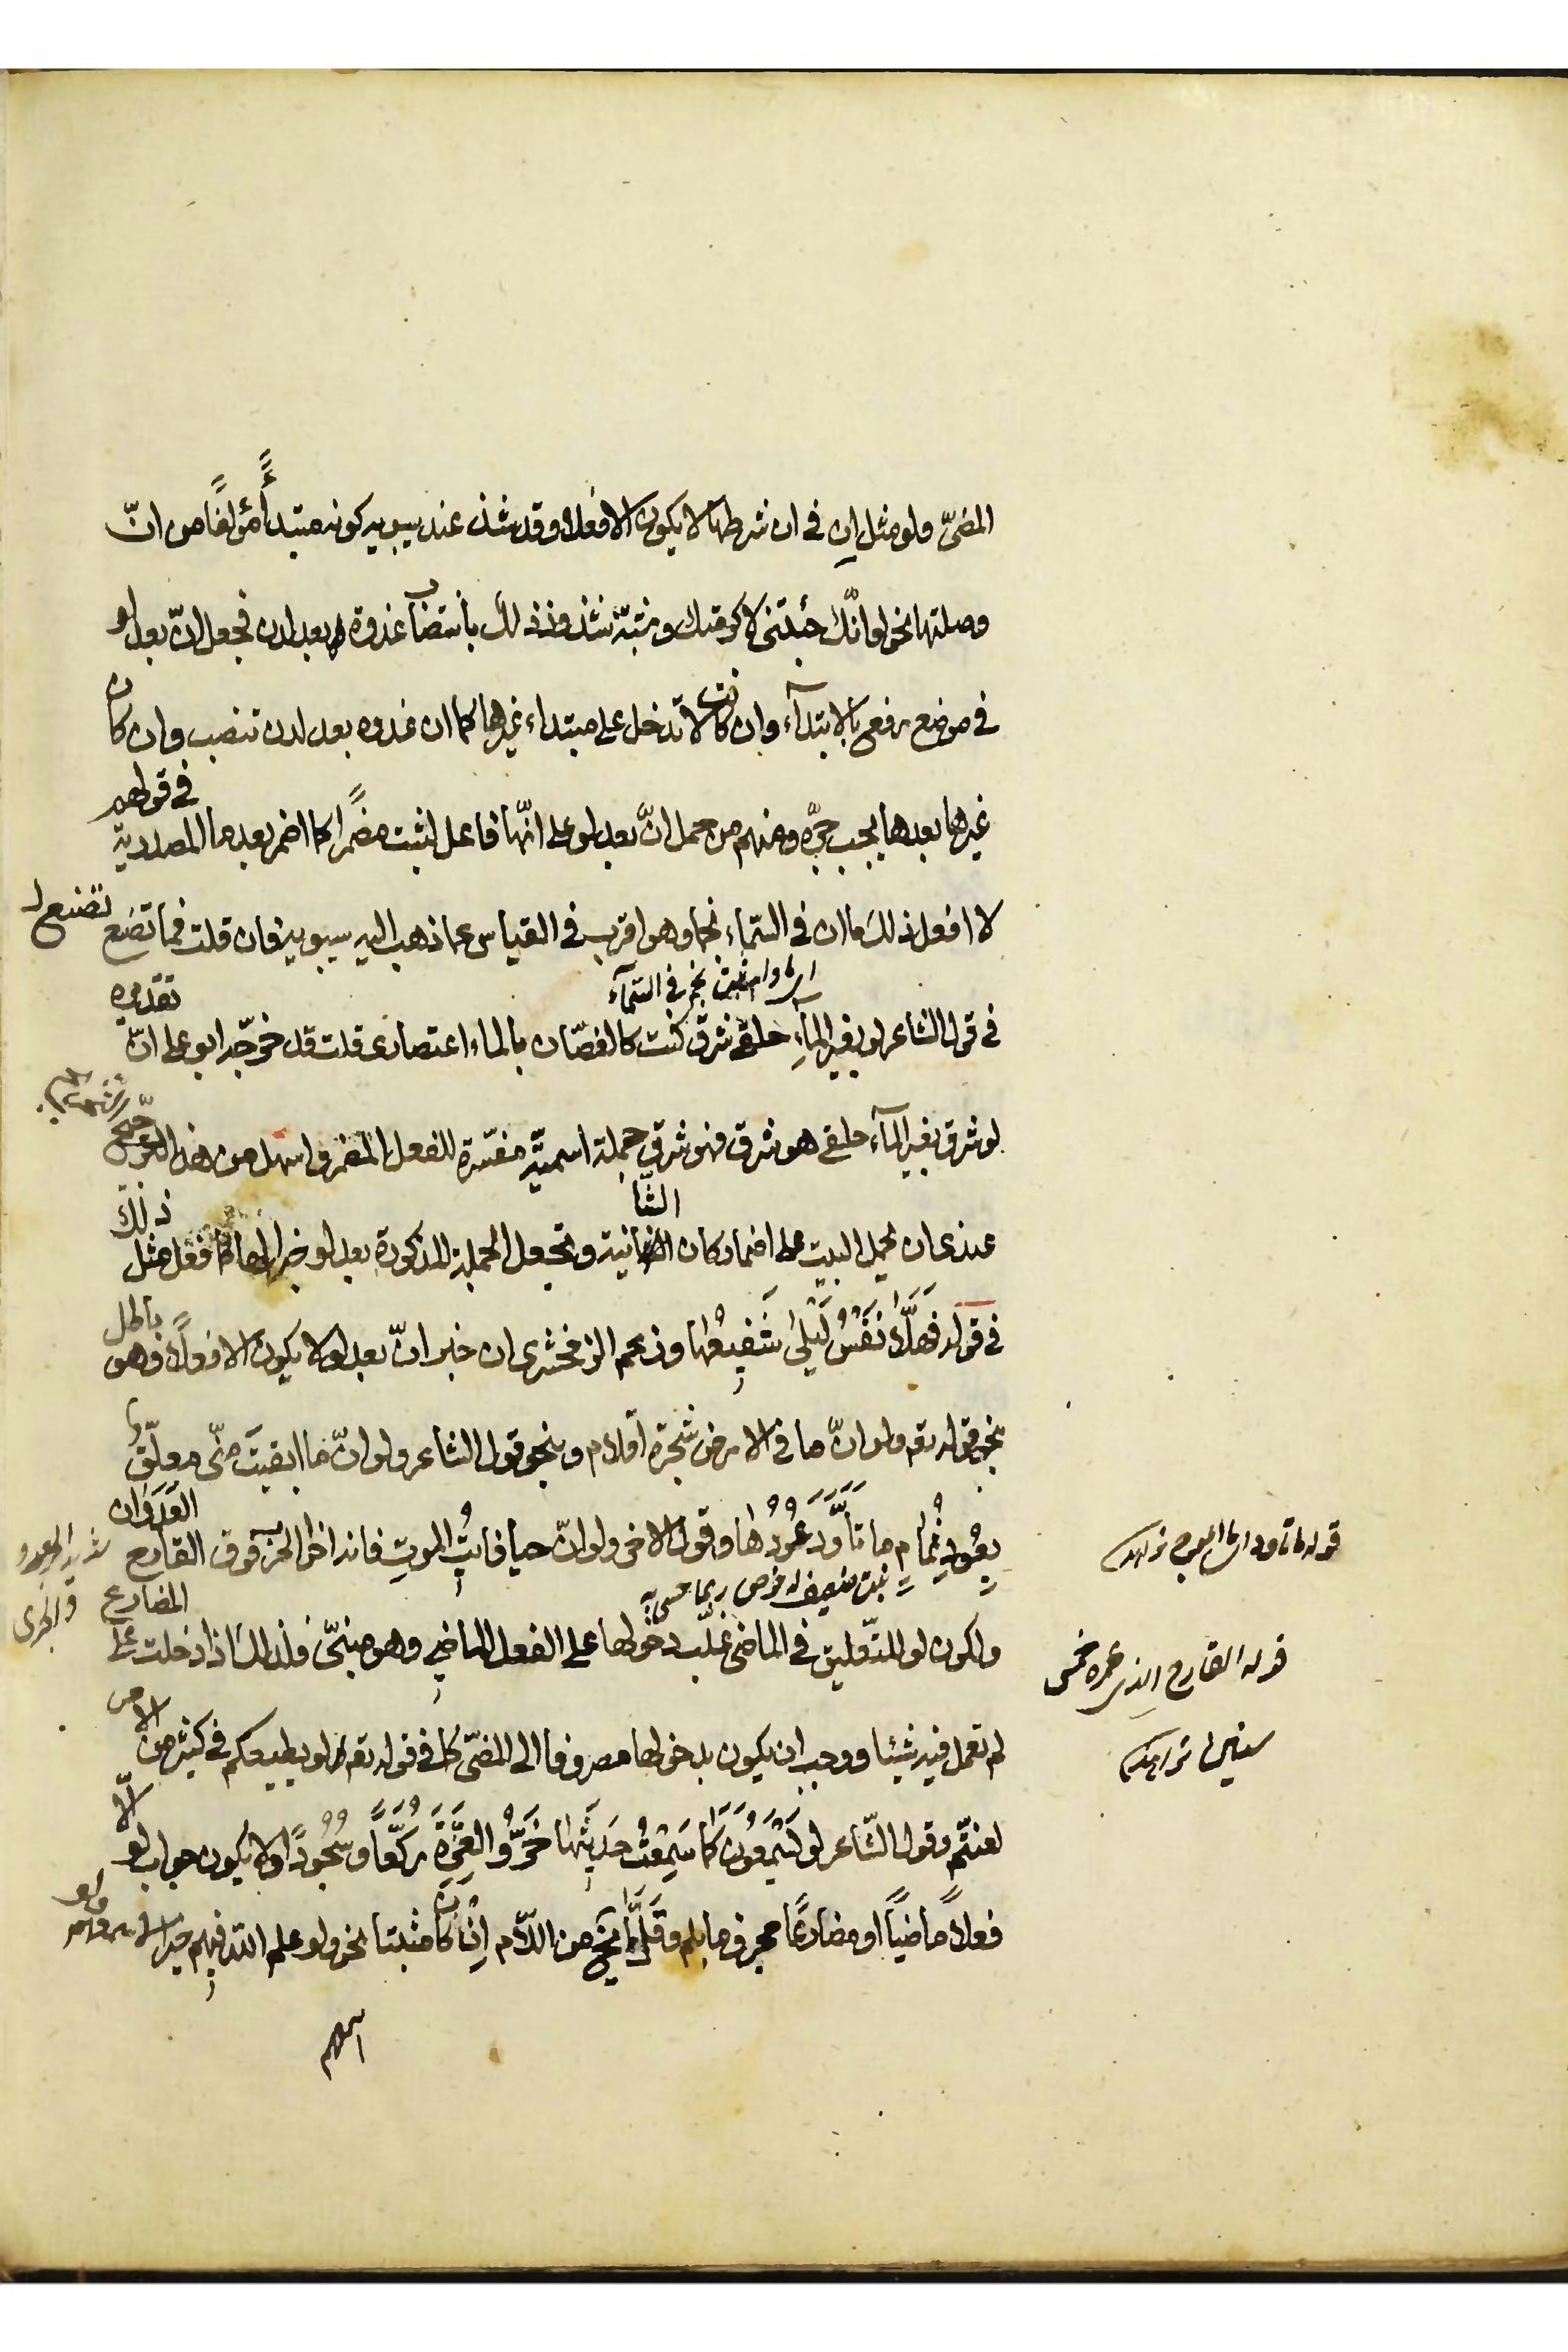 المضىّ ولو مثل إن في ان شرطها لا يكون الا فعلا وقد شذ عند سيبويه كونه مبتدأً مؤلفًا من انّ
وصلتها نحو لو انّك جئتنى لاكرمتك وشبّه شذوذ ذلك بانتصاب غدوة بعد لدن فجعل انّ بعد لو
في موضع رفع بالابتدآء وان كانت لا تدخل على مبتداء غيرها كما ان غدوه بعد لدن تنصب وان كان
غيرها بعدها يجب جرّه ومنهم من حمل انّ بعد لو على انّها فاعل لثبت مضمرًا كما اضمر بعد ما المصدرية في قولهم
لا افعل ذلك ما ان في السّماء نجما وهو اقرب في القياس مما ذهب اليه سيبويه فان قلت فما تصنع
اى ما ثبت نجم في السّمآء
في قول الشاعر لو بغير المآءِ حلقى شرق كنت كالغصّان بالماء اعتصارى قلت قد خرّجه ابو على انّ تقديره
لو شرق بغير المآء حلقى هو شرق فهو شرق جملة اسميّة مفسّرة للفعل المضمر واسهل من هذا
عندى ان يحمل البيت على اضمار كان الشّانية وتجعل الجملة المذكورة بعد لو خبرا لها كما فعل مثل ذلك
في قوله فَهَلَّا نَفْسُ لَيْلىٰ شَفِيعُها وزعم الزمخشرى ان خبر انّ بعد لو لا يكون الا فعلًا وهو باطل
بنحو قوله تعم ولو انّ ما في الارض من شجرة اقلام وبنحو قول الشاعر ولو انّ ما ابقيتَ منّى معلّقٌ
بِعُودِ ثُمامٍ ما تَأَوَّدَ عُودُها وقول الاخر ولو انّ حيا فايتُ الموتِ فاته اخو الحرب فوق القارح العَدَوان
نبت ضعيف له خوص
ولكون لو للتّعليق في الماضى غلّب دخولها على الفعل الماضىِ وهو مبنىّ فلذلك اذا دخلت على المضارع
لم تعمل فيه شيئا ووجب ان يكون بدخولها مصروفا الى المضىّ كما في قوله تعم لو يطيعكم في كثير من الامر
لعنتّم وقول الشّاعر لو يَسْمَعُونَ كَمَا سَمِعْتُ حَدِيثَها خَرُّوا لِعَزَّةَ رُكَّعاً وسُجُودًا ولا يكون جواب لو الّا
فعلاً ماضياً او مضارعًا مجزوما بلم وقَلَّمَا يخلو من اللّام انْ كان مثبتا نحو ولو علم الله فيهم خيرا لاسمعهم ولو
اسمعهم
قوله ما تاود
قوله القارح الذى عمره خمس
سنين